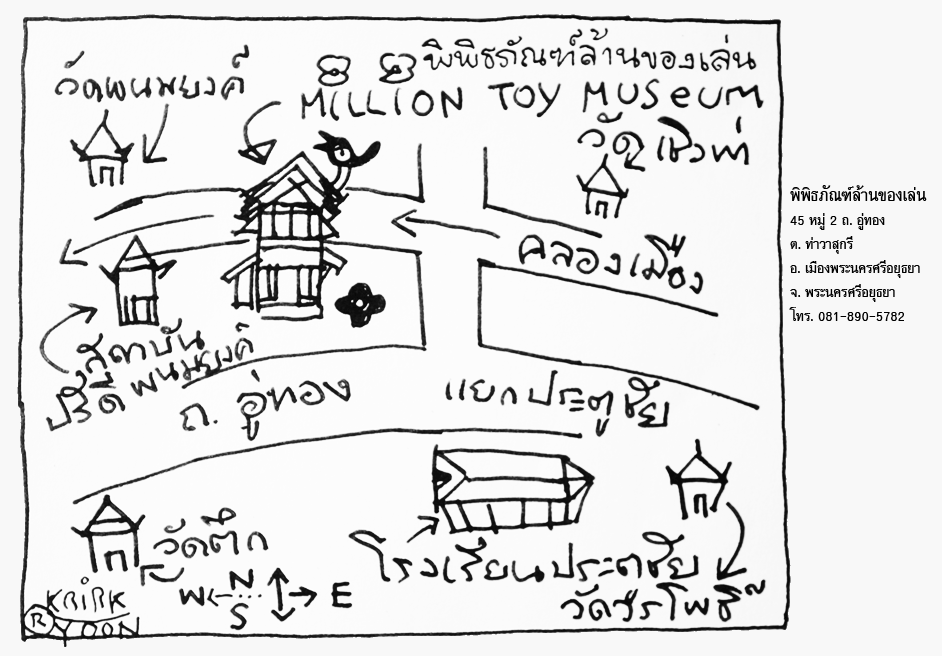 พิพิธภัณฑ์ล้านของเล่น
MILLION TOY MUSEUM
วัดพนมยงค์
วัดเชิงท่า
คลองเมือง
สถาบัน
ปรีดี พนมยงค์
ถ. อู่ทอง
แยกประตูชัย
วัดตึก
โรงเรียนประตูชัย
วัดวรโพธิ์
N
W E
S
KRiRK
YOON
R
พิพิธภัณฑ์ล้านของเล่น
45 หมู่ 2 ถ. อู่ทอง
ต. ท่าวาสุกรี
อ. เมืองพระนครศรีอยุธยา
จ. พระนครศรีอยุธยา
โทร. 081-890-5782